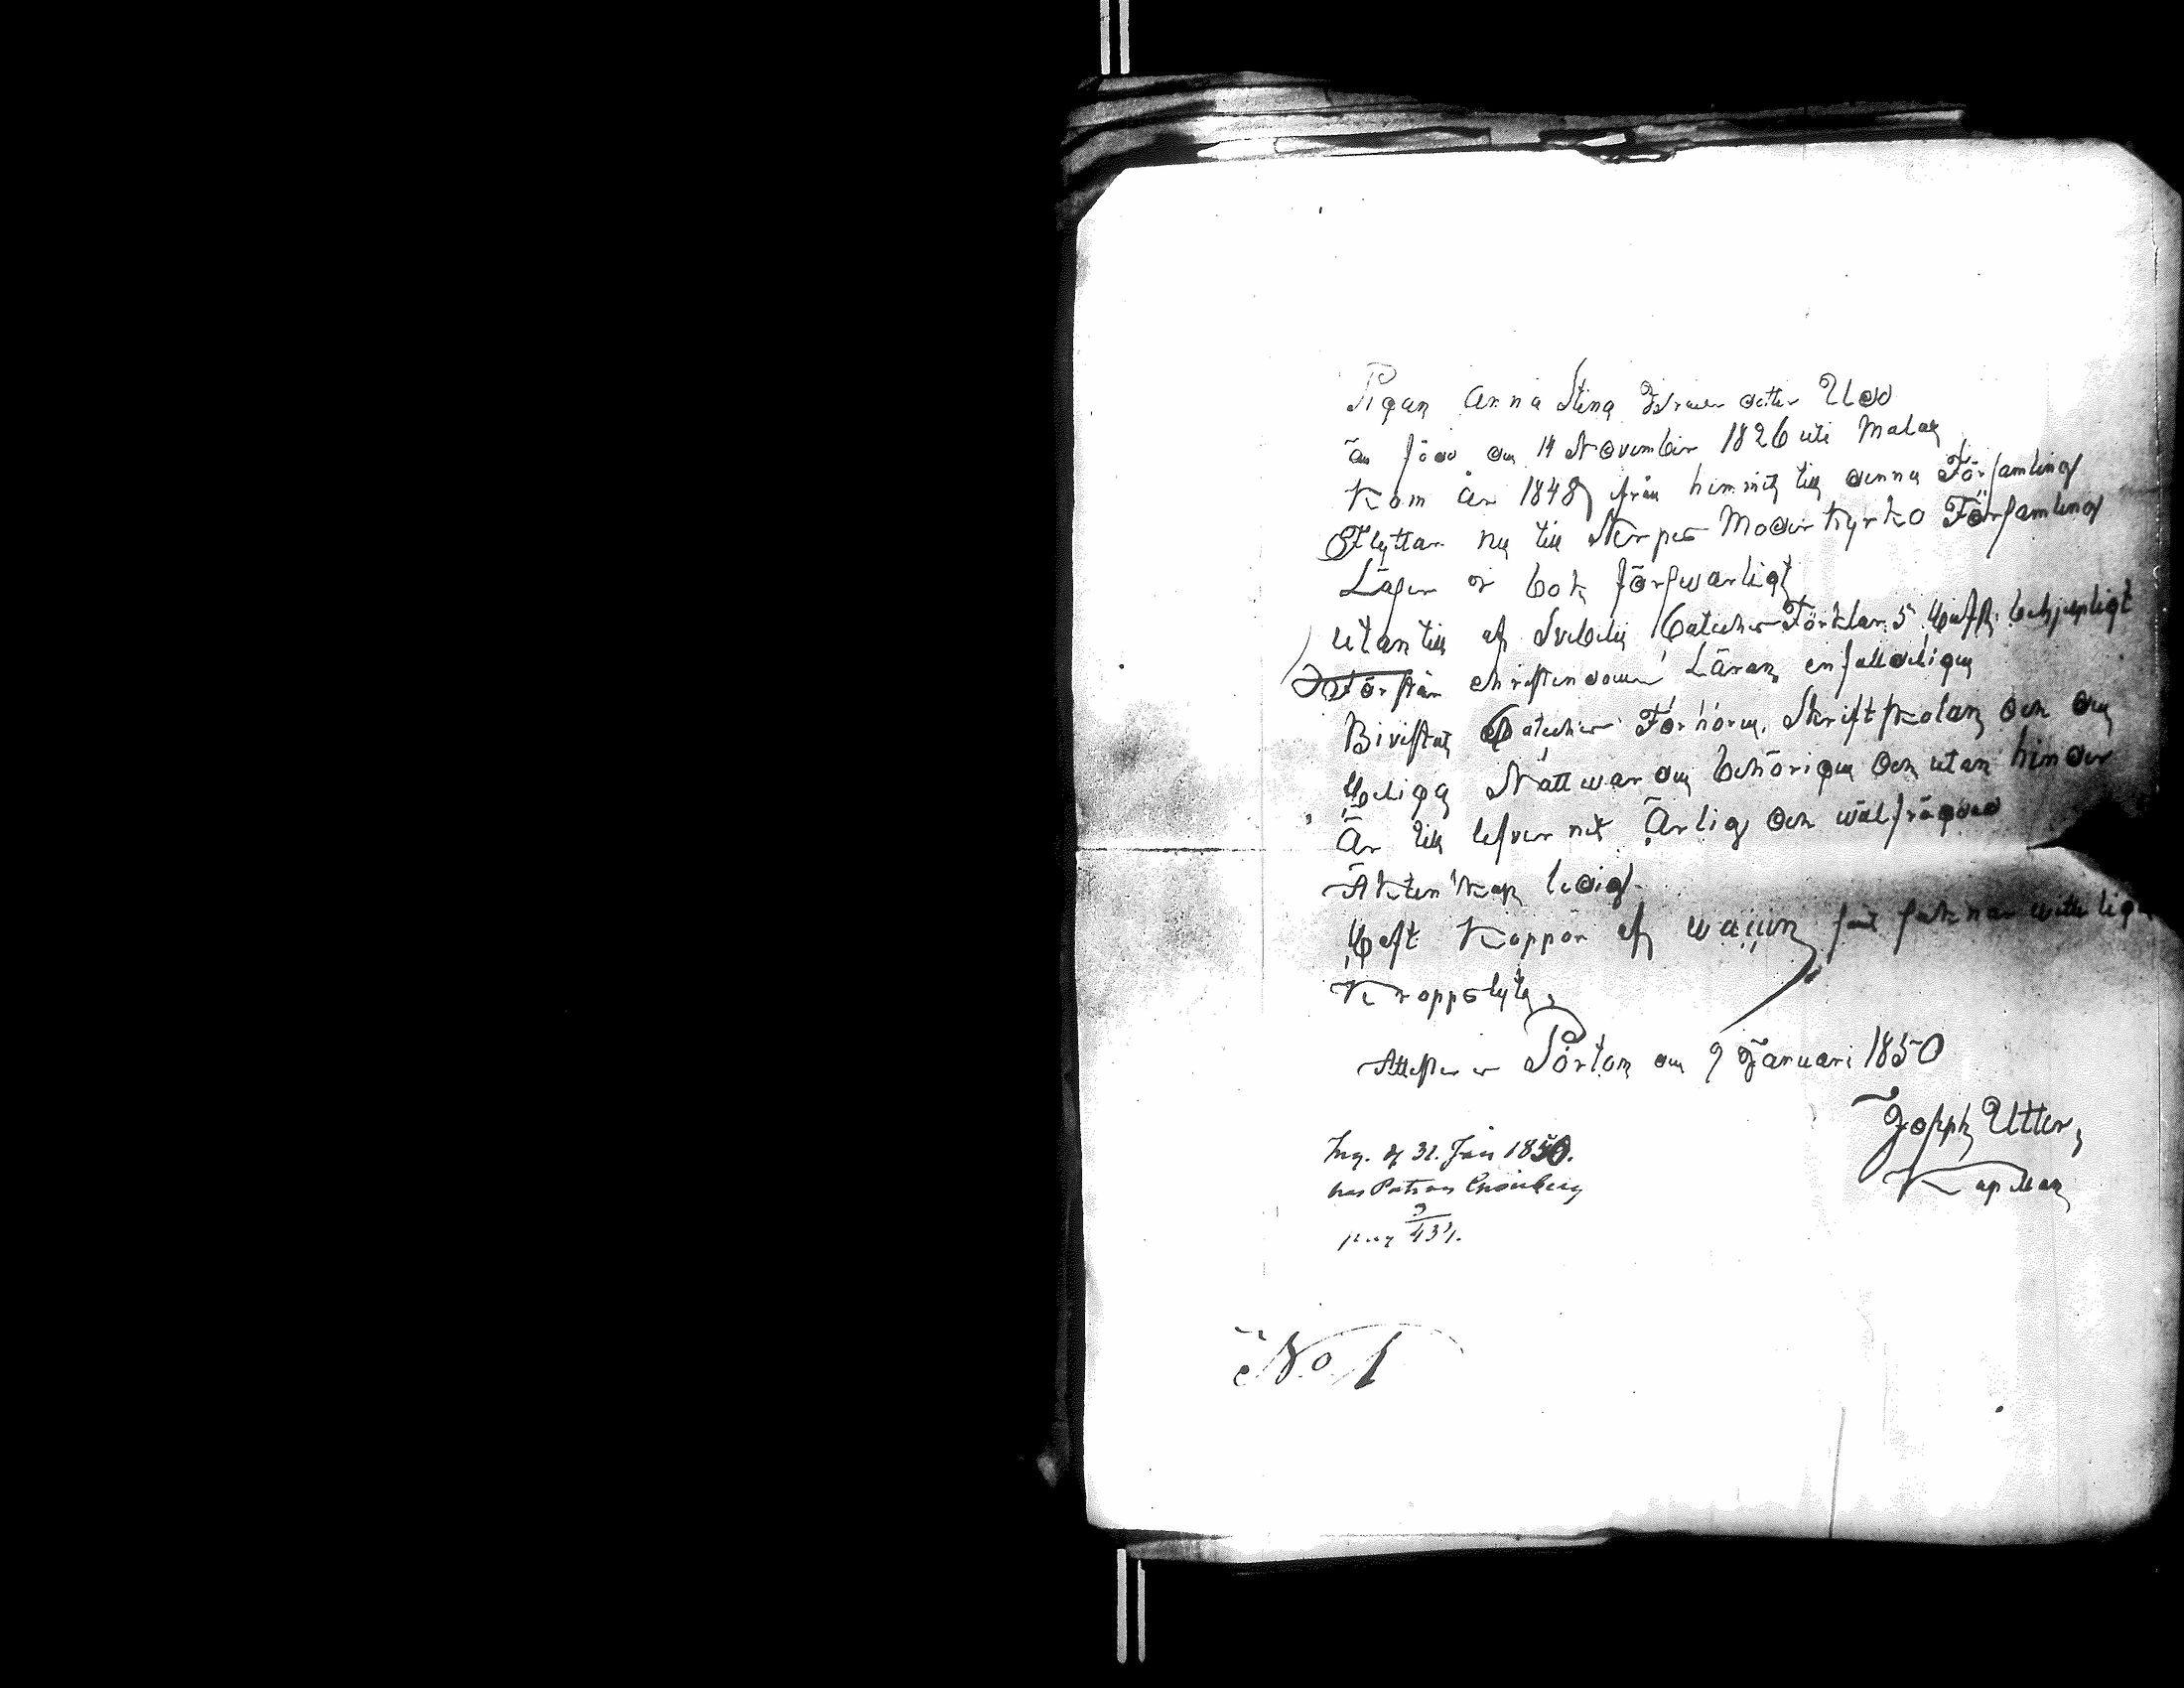 Pigan Anna Stina Israels dotter Udd
är född den 14 November 1826 uti Malax
Kom år 1848 från hemmet till denna Församling
Flyttar nu till Nerpes Moderkyrko Församling
Läser i bok försvarligt
Utantill af Svebelii Cateches Förklar. 5 Hufst. behjerpligt
Förstår christendoms Läran enfalldeligen
Bivistat Cateches Förhören, Skriftskolan och den
Heliga Nattvarden behörigen och utan hinder
Är till lefvernet Ärlig och välfrägdad
Äktenskap ledig
Haft Koppor af vaccin samt saknar
Kroppslyte,
Attesterar Pörtom den 9 Januari 1850
Joseph Utter,
Kapellan
Ing. d 31. Jan 1850.
hos Patron
pag
No 1